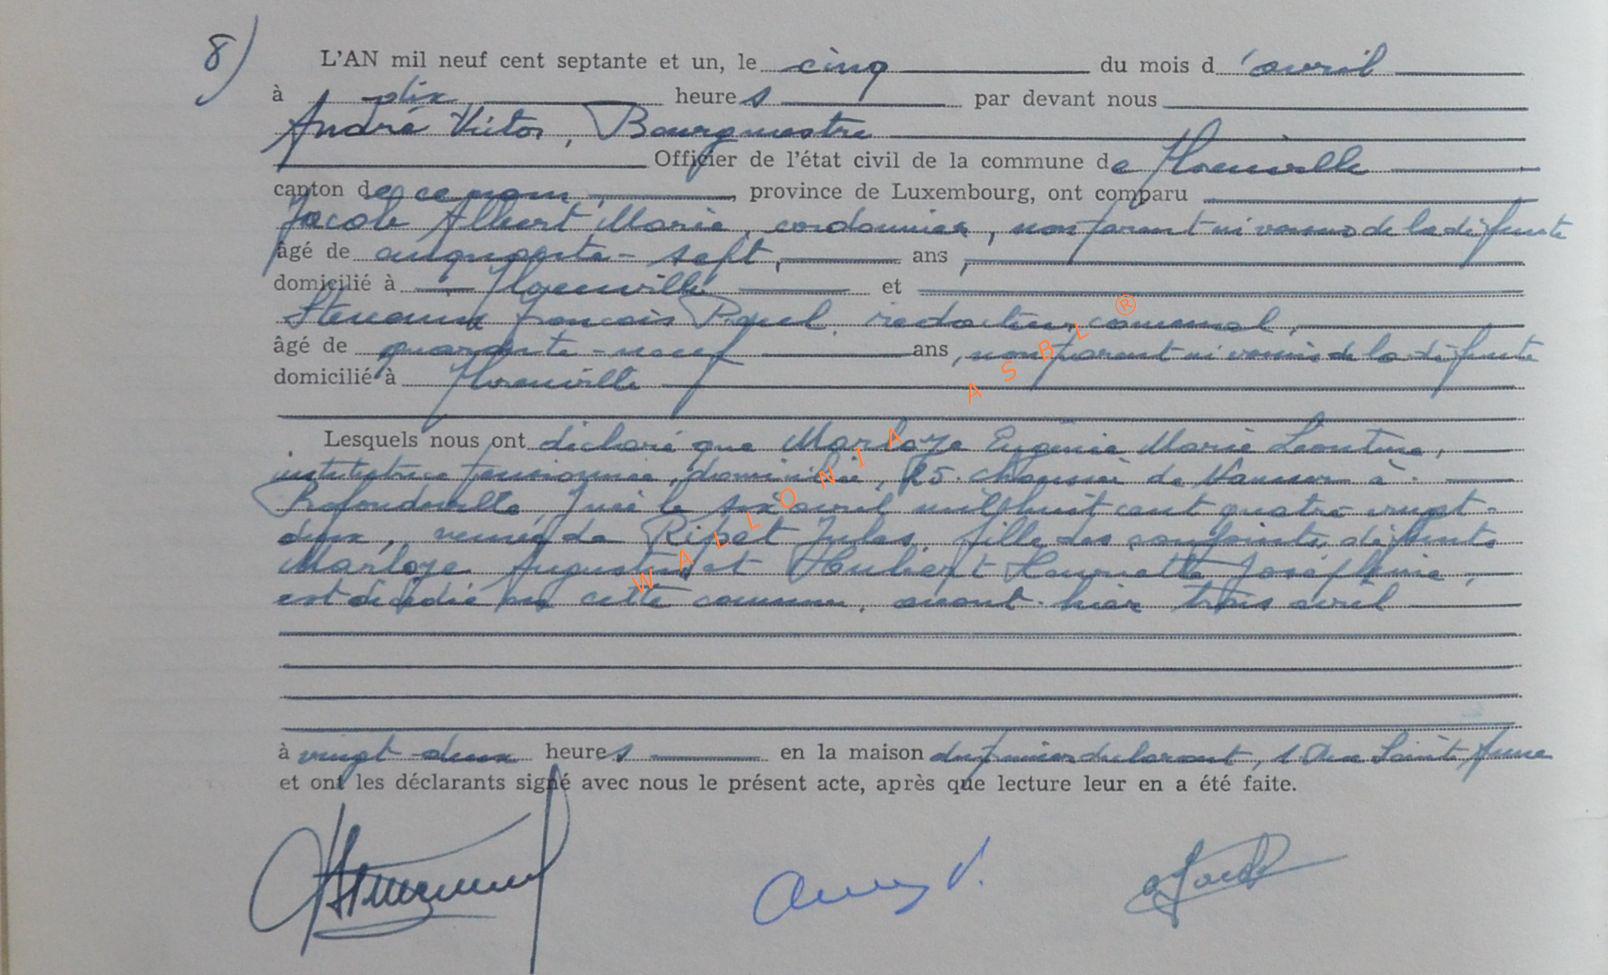 8)
L'AN mil neuf cent septante et un, le cinq du mois d'avril
à dix heures par devant nous
André Victor, Bourgmestre
Officier de l'état civil de la commune de Florenville
canton de ce nom, province de Luxembourg, ont comparu
Jacob Albert Marie, cordonnier, non parent ni voisin de la défunte
âgé de cinquante-sept, ans,
domicilié à Florenville et
François rédacteur communal,
âgé de quarante-neuf ans, non parent ni voisin de la défunte
domicilié à Florenville
Lesquels nous ont déclaré que Marloye Eugénie Marie Léontine,
institutrice pensionnée, domiciliée, 25. Chaussée de Namur à
Profondeville, née le six avril mil huit cent quatre vingt-
deux, veuve de Ripet Jules, fille des conjoints, défunts
Marloye Augustin et Houbert Henriette Joséphine,
est décédée en cette commune, avant-hier trois avril
à vingt-deux heures en la maison du premier déclarant, 1 Rue Sainte Anne
et ont les déclarants signé avec nous le présent acte, après que lecture leur en a été faite.
WALLONIA ASBL ®